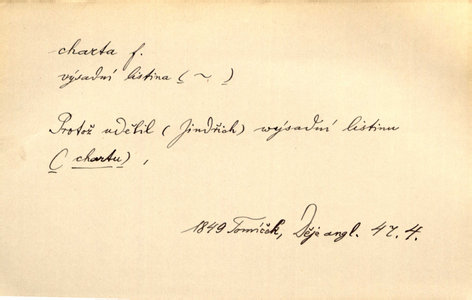 charta f.
výsadní listina ( ~ . )
Protož udělil ( Jindřich ) wýsadní listinu
( chartu ) ,
1849 Tomíček, Děje angl. 47. 4.